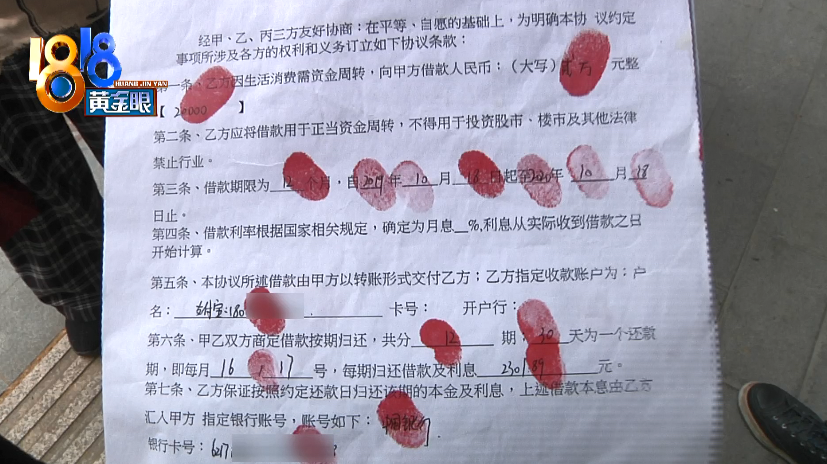 1818
HUANG JIN YAN
黄金眼
经甲、乙、丙三方友好协商：在平等、自愿的基础上，为明确本协 议约定
事项所涉及各方的权利和义务订立如下协议条款：
第一条、乙方因生活消费需资金周转，向甲方借款人民币：（大写）贰万 元整
【 20000 】
第二条、乙方应将借款用于正当资金周转，不得用于投资股市、楼市及其他法律
禁止行业。
第三条、借款期限为 12 个月，自2019年 10 月 18 日起至2020年 10 月 18
日止。
第四条、借款利率根据国家相关规定，确定为月息__%,利息从实际收到借款之日
开始计算。
第五条、本协议所述借款由甲方以转账形式交付乙方；乙方指定收款账户为：户
名： 支付宝:180 卡号： 开户行：
第六条、甲乙双方商定借款按期归还，共分 12 期，30 天为一个还款
期，即每月 16 / 17 号，每期归还借款及利息 2301.89 元。
第七条、乙方保证按照约定还款日归还该期的本金及利息，上述借款本息由乙方
汇入甲方 指定银行账号，账号如下：中国银行.
银行卡号：6217